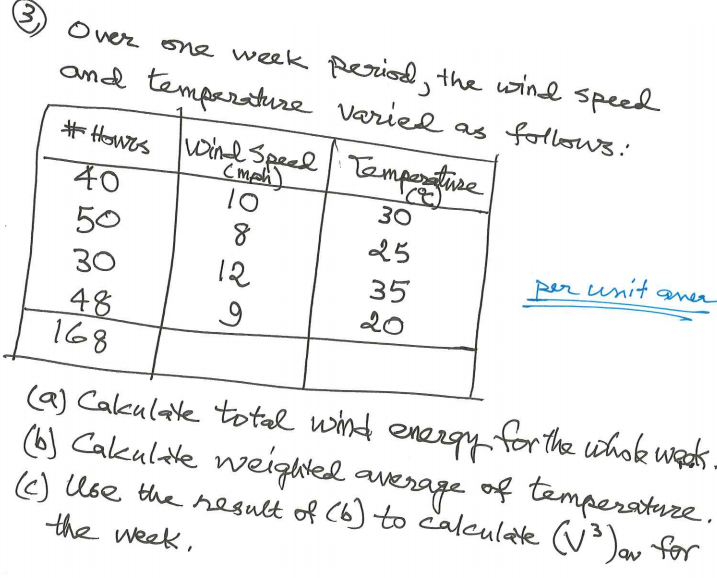 3
Over one week period, the wind speed
and temperature varied as follows:
# Hours Wind Speed (mph) Temperature (°C)
40 10 30
50 8 25
30 12 35
48 9 20
168
per unit
(a) Calculate total wind energy for the whole week.
(b) Calculate weighted average of temperature.
(c) Use the result of (b) to calculate (V³)av for
the week.